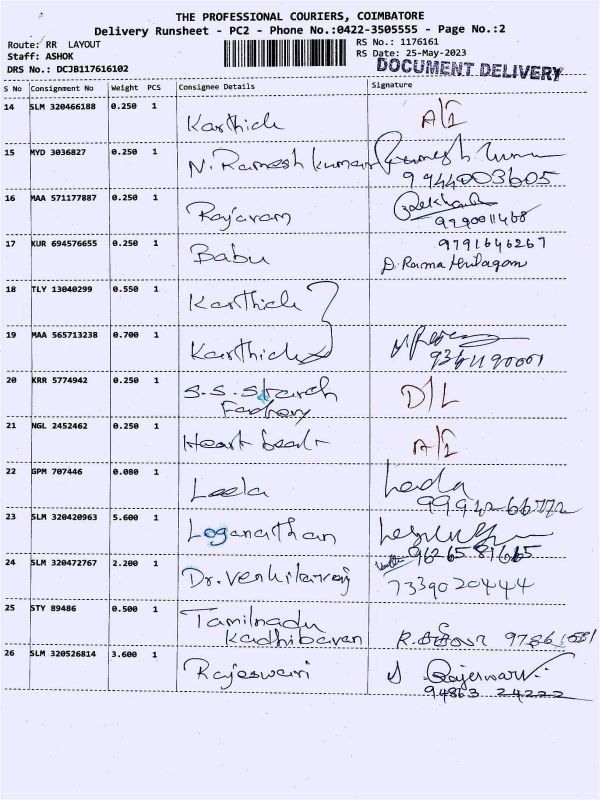 THE PROFESSIONAL COURIERS, COIMBATORE
Delivery Runsheet - PC2 - Phone No.:0422-3505555 - Page No.:2
Route: RR LAYOUT
RS No.: 1176161
Staff: ASHOK
RS Date: 25-May-2023
DRS No.: DCJB117616102
DOCUMENT DELIVERY
S No Consignment No Weight PCS Consignee Details Signature
14 SLM 320466188 0.250 1 Karthick
15 MYD 3036827 0.250 1 N. Ramesh Kumar
9944003605
16 MAA 571177887 0.250 1 Rajaram
17 KUR 694576655 0.250 1 Babu 9791646267
18 TLY 13040299 0.550 1 Karthick
19 MAA 565713238 0.700 1 Karthick
20 KRR 5774942 0.250 1 S.S. Starch D/L
Factory
21 NGL 2452462 0.250 1
22 GPM 707446 0.080 1 Leela
23 SLM 320420963 5.600 1 Loganathan
24 SLM 320472767 2.200 1 7339020444
25 STY 89486 0.500 1 Tamilnadu
26 SLM 320526814 3.600 1 Rajeswari Rajeswari
94863 24222